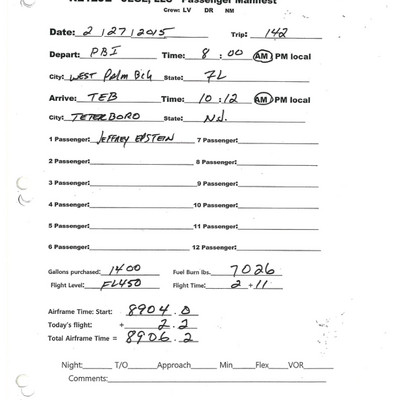 JEGE, LLC Passenger Manifest
Crew: LV DR NM
Date: 2/27/2015 Trip: 142
Depart: PBI Time: 8:00 AM PM local
City: West Palm Bch State: FL
Arrive: TEB Time: 10:12 AM PM local
City: TETERBORO State: NJ.
1 Passenger: JEFFREY EPSTEIN 7 Passenger:
2 Passenger: 8 Passenger:
3 Passenger: 9 Passenger:
4 Passenger: 10 Passenger:
5 Passenger: 11 Passenger:
6 Passenger: 12 Passenger:
Gallons purchased: 1400 Fuel Burn lbs. 7026
Flight Level: FL450 Flight Time: 2 +11
Airframe Time: Start: 8904.0
Today's flight: + 2.2
Total Airframe Time = 8906.2
Night: T/O Approach Min Flex VOR
Comments: